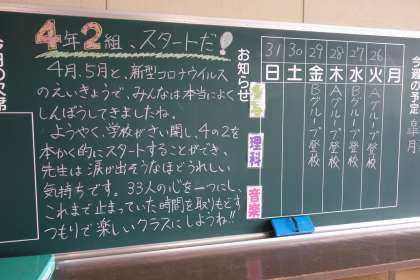 4年2組、スタートだ!
4月、5月と、新型コロナウイルス
のえいきょうで、みんなは本当によく
しんぼうしてきましたね。
ようやく、学校がさい開し、4の2を
本かく的にスタートすることができ、
先生は涙が出そうなほどうれしい
気持ちです。33人の心を一つにし、
これまで止まっていた時間を取りもどす
つもりで楽しいクラスにしようね!!
お知らせ
理科
音楽
今週の予定
皐月
月
26 火 Aグループ登校
27 水 Bグループ登校
28 木 Aグループ登校
29 金 Bグループ登校
30 土
31 日